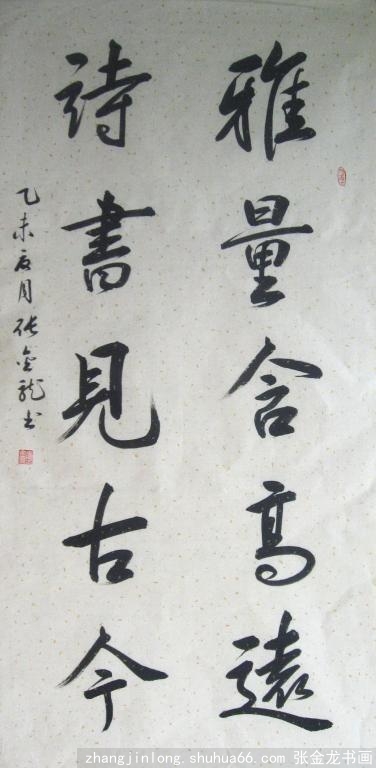 雅量含高遠
詩書見古今
乙未辰月張金龍书
zhangjinlong.shuhua66.com 张金龙书画